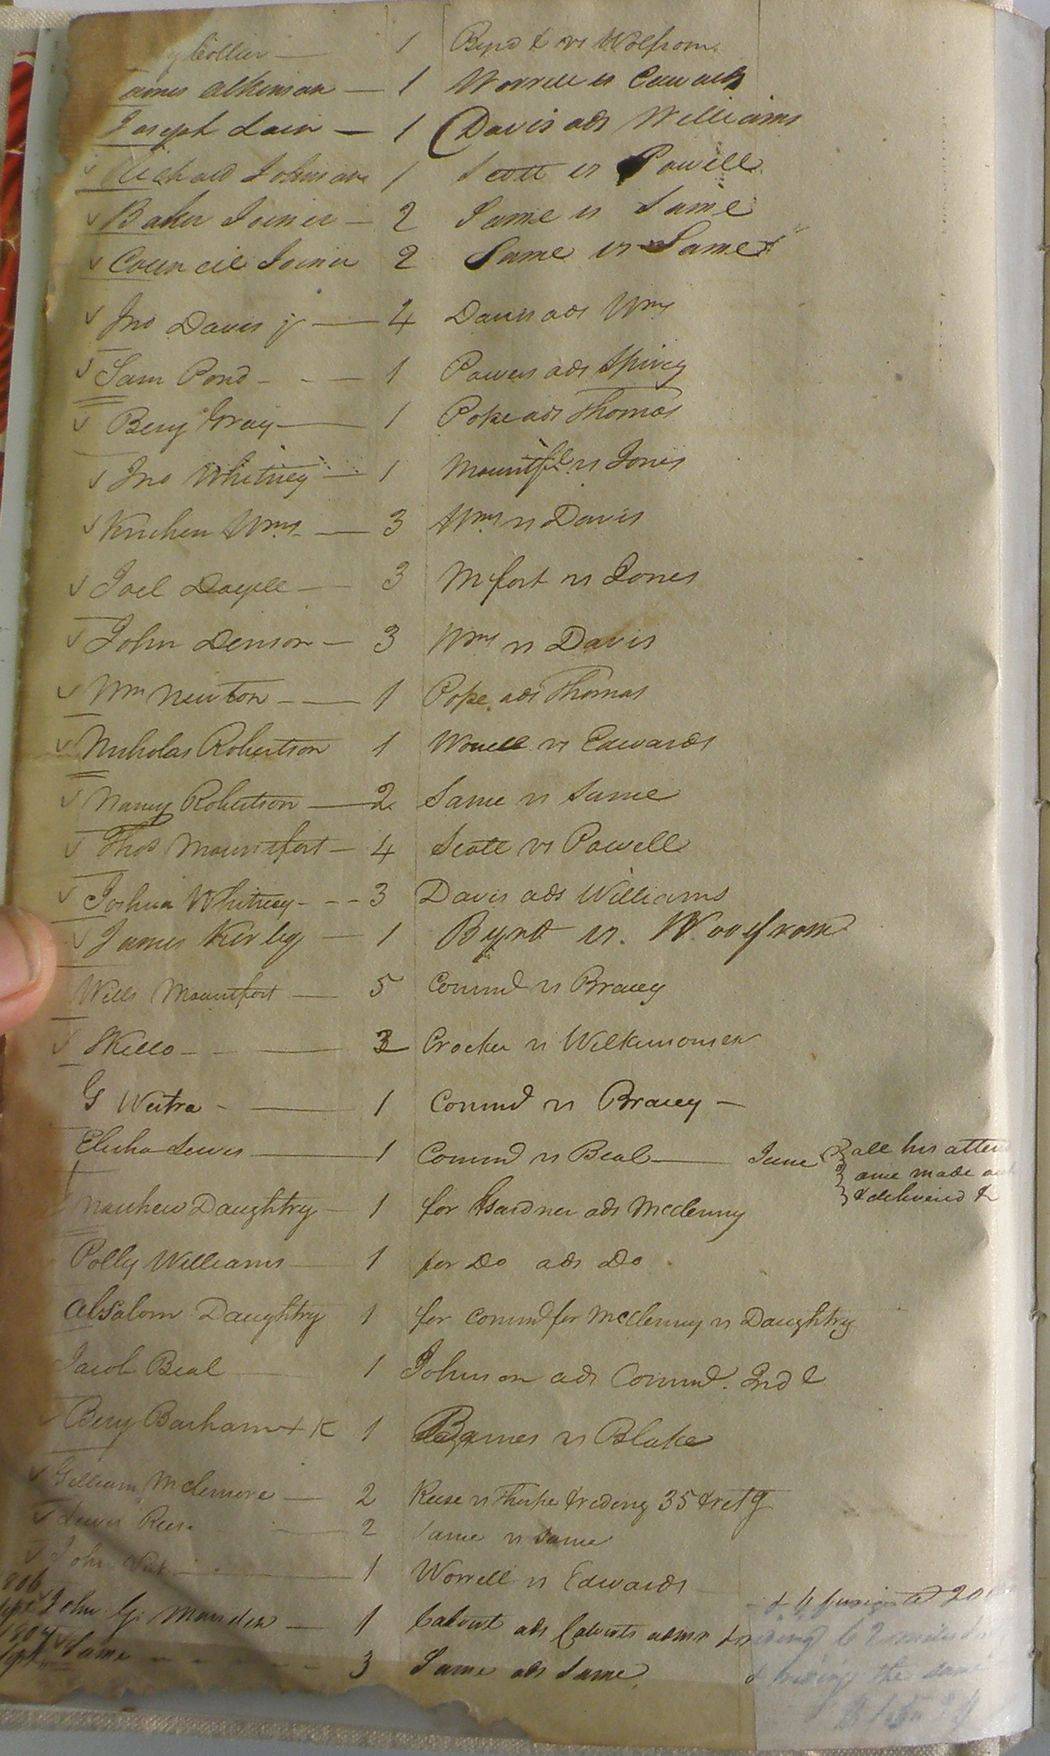 y Collier — 1 Byrd & vs Wolfrom
ames Atkinson — 1 Worrell vs Edwards
Joseph Lain — 1 (Davis ads Williams
Richard Johnson 1 Scott vs Powell
Baker Joiner — 2 Same vs Same
Council Joiner 2 Same vs Same
Jno Davis jr — 4 Davis ads Wms
Sam Pond - - — 1 Powers ads Spivey
Benj Gray — 1 Pope ads Thomas
Jno Whitney — 1 Mountft vs Jones
Kinchen Wms — 3 Wms vs Davis
Joel Doyell — 3 Mfort vs Jones
John Denson — 3 Wms vs Davis
Wm Newton - — 1 Pope ads Thomas
Nicholas Robertson 1 Worrell vs Edwards
Nancy Robertson — 2 Same vs Same
Thos Mountfort — 4 Scott vs Powell
Joshua Whitney - - - 3 Davis ads Williams
James Kirby — 1 Byrd vs. Woolfrom
Wills Mountfort — 5 Commd vs Bracey
Skello - — 3 Crocker vs
G Westra - — 1 Commd vs Bracey —
Elisha Lewis — 1 Commd vs Beal — June all his atten
ance made out
& delivered to
Mathew Daughtry — 1 for Gardner ads McClenny
Polly Williams — 1 for Do ads Do
Absalom Daughtry 1 for commd for McClenny vs Daughtry
Jacob Beal 1 Johnson ads Commd. Indl
Benj Barham + K 1 Barnes vs Blake
Gilliam McLemore — 2 Reese vs Thorpe & riding 35 & retg
Lewis Reese — 2 Same vs Same
John 1 Worrell vs Edwards
806
Sept John G. — 1 Calvert ads Calverts admr
1807
Sept Same - - - - 3 Same ads Same & the same